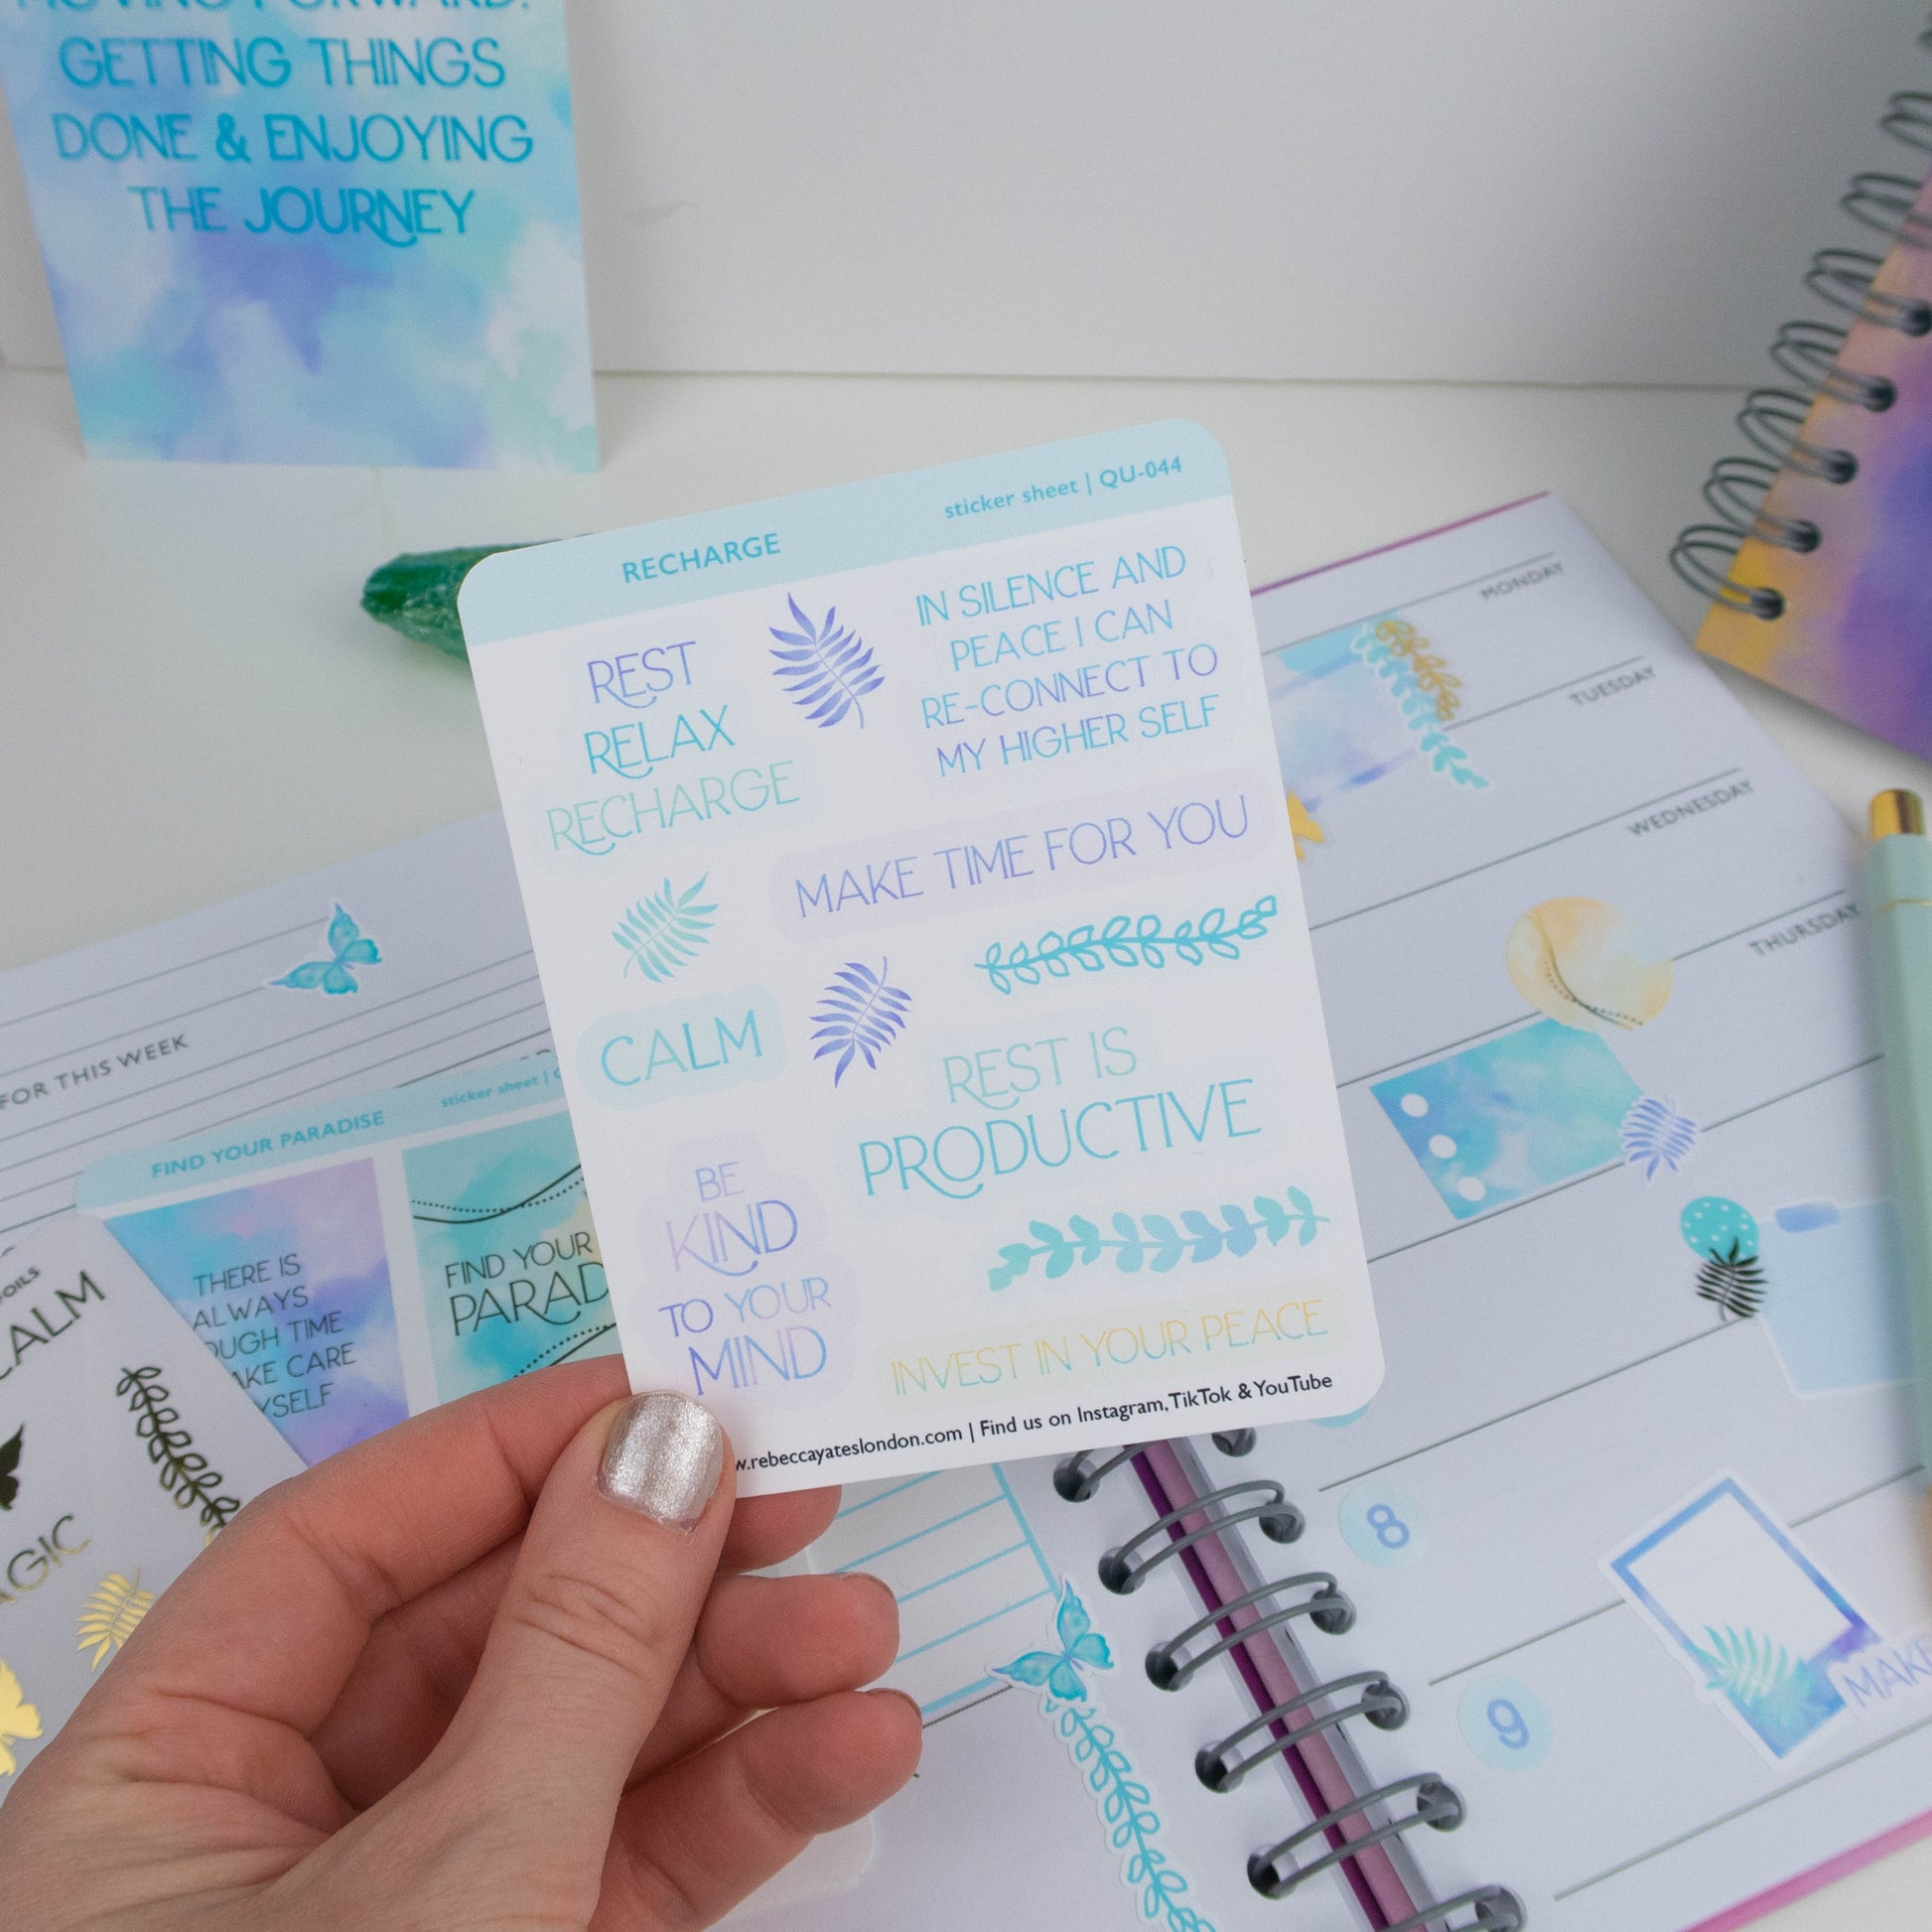 GETTING THINGS
DONE & ENJOYING
THE JOURNEY
RECHARGE
sticker sheet | QU-044
REST
RELAX
RECHARGE
IN SILENCE AND
PEACE I CAN
RE-CONNECT TO
MY HIGHER SELF
MAKE TIME FOR YOU
CALM
REST IS
PRODUCTIVE
BE
KIND
TO YOUR
MIND
INVEST IN YOUR PEACE
w.rebeccayateslondon.com | Find us on Instagram, TikTok & YouTube
MONDAY
TUESDAY
WEDNESDAY
THURSDAY
8
9
MAKE
FOR THIS WEEK
FIND YOUR PARADISE
sticker sheet |
THERE IS
ALWAYS
TIME
CARE
FIND YOUR
CALM